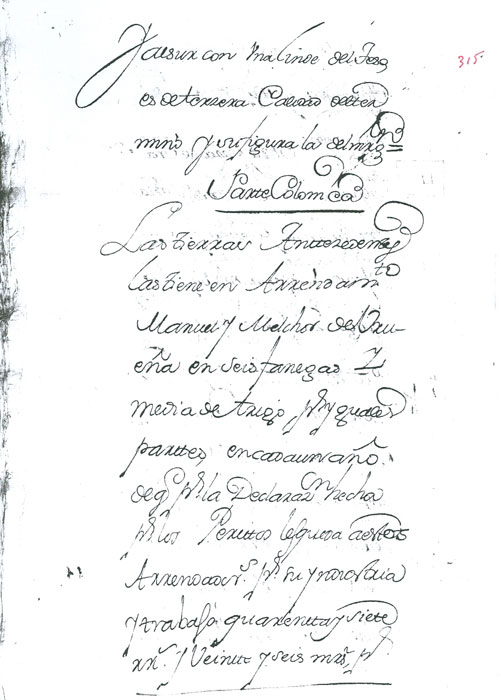 315.
Y al sur con una linde del Jesq
es de tercera Calidad del ter
mino y su figura la del mrgn =
Parte Colonica
Las tierras Antteriorm
las tiene en Arrendam to
Manuel y Melchor de Uru-
eña en seis fanegas y
media de trigo pr yguales
parttes, en cada un año.
de q pr la Declaraz on hecha
pr los Perittos les queda a estos
Arrendadors. pr su yndustria
y trabajo quarentta y siete
rrs. y Veintte y seis mrs. pr